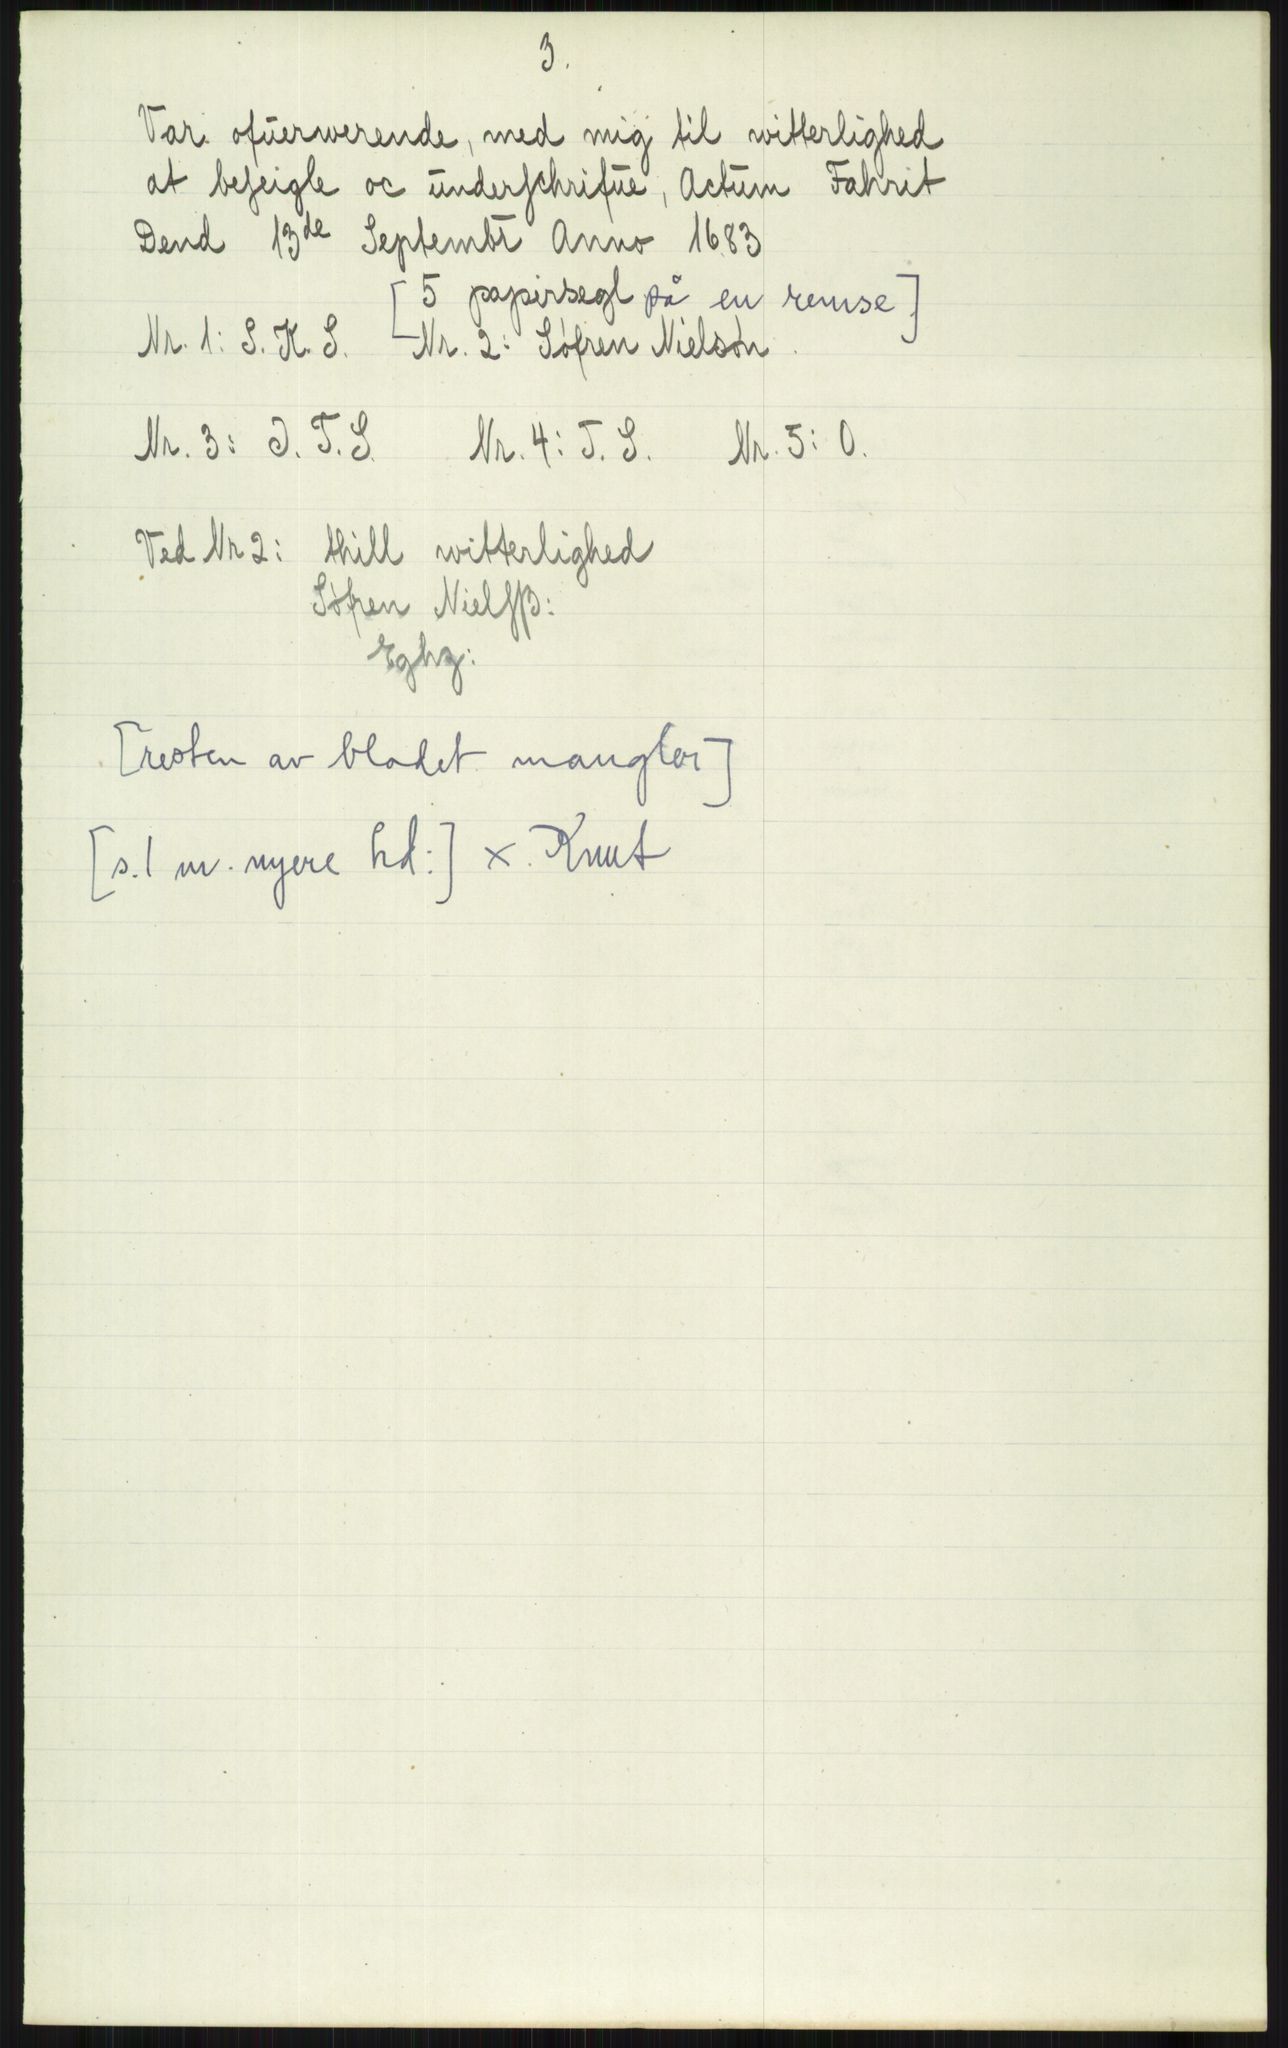 3.
Var ofŭerwerende, med mig til witterlighed
at beſeigle oc ŭnderſchrifŭe, Actŭm Fahrit
Dend 13de Septembr Anno 1683
[5 papirsegl på en remse]
Nr. 1: S. K. S. Nr. 2: Søfren Nielsøn.
Nr. 3: J. T. S. Nr. 4: T. S. Nr. 5: O.
Ved Nr 2: thill witterlighed
Søfren Nielſſβ:
Eghz:
[resten av bladet mangler]
[s. 1 m. nyere hd:] x. Knut